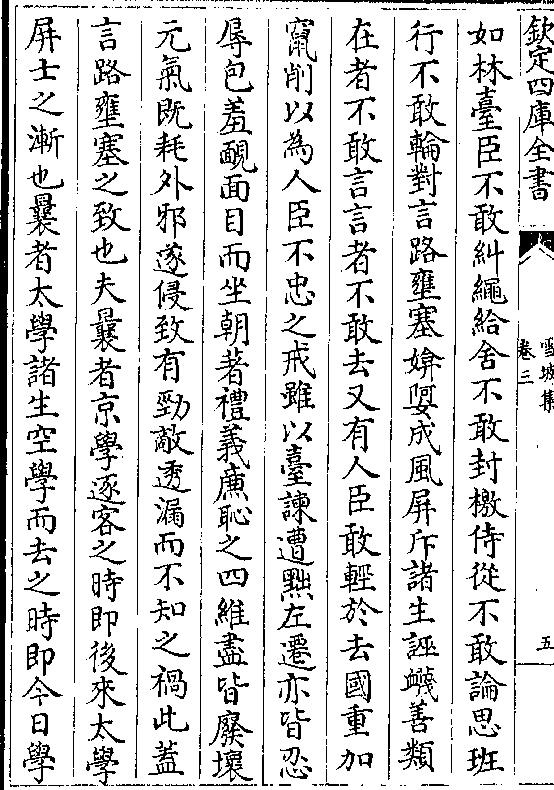 欽定四庫全書
雪坡集
卷三
五
如林臺臣不敢糾繩給舍不敢封檄侍從不敢論思班
行不敢輪對言路壅塞媕娿成風屏斥諸生誣衊善類
在者不敢言言者不敢去又有人臣敢輕於去國重加
竄削以為人臣不忠之戒雖以臺諫遭黜左遷亦皆忍
辱包羞靦面目而坐朝著禮義㢘恥之四維盡皆廢壞
元氣既耗外邪遂侵致有勁敵透漏而不知之禍此蓋
言路壅塞之致也夫曩者京學逐客之時即後來太學
屏士之漸也曩者太學諸生空學而去之時即今日學